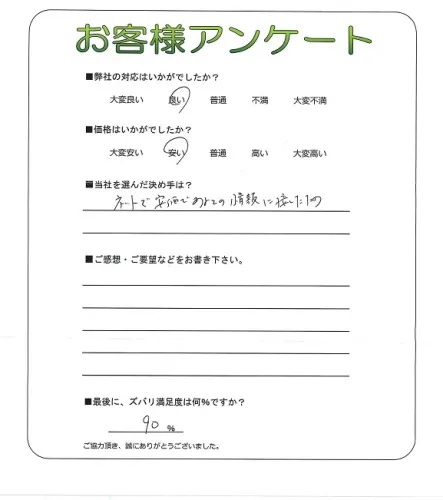 お客様アンケート
■弊社の対応はいかがでしたか？
大変良い 良い 普通 不満 大変不満
■価格はいかがでしたか？
大変安い 安い 普通 高い 大変高い
■当社を選んだ決め手は？
ネットで安価であるとの情報に接したため
■ご感想・ご要望などをお書き下さい。
■最後に、ズバリ満足度は何%ですか？
90 %
ご協力頂き、誠にありがとうございました。